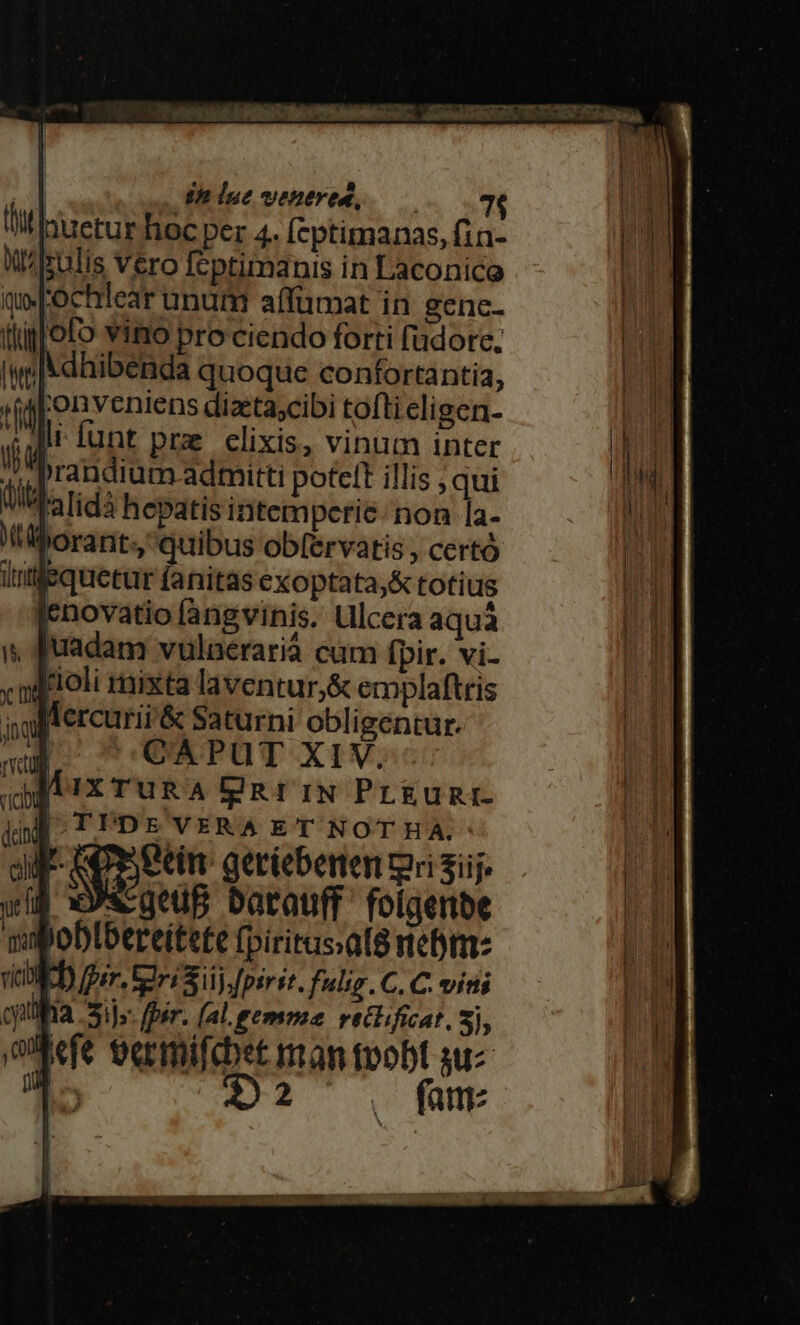 in lue venereâ. 75
nuetur hoc per 4. ſeptimanas, ſin-
gulis verò ſeptimanis in Laconico
cochlear unum aſſumat in gene-
roſo vino pro ciendo forti ſudore.
Adhibenda quoque confortantia,
conveniens diæta, cibi toſti eligen-
di ſunt præ elixis, vinum inter
prandium admitti poteſt illis, qui
calidâ hepatis intemperie non la-
borant, quibus obſervatis, certò
ſequetur ſanitas exoptata, & totius
renovatio ſangvinis. Ulcera aquâ
quadam vulnerariâ cum ſpir. vi-
trioli mixta laventur, & emplaſtris
Mercurii & Saturni obligentur.
CAPUT XIV.
MIXTURA ♁RI IN PLEURI-
TIDE VERA ET NOTHA.
Lein geriebenen ♁ri ʒiij.
geuß darauff folgende
wohlbereitete ſpiritus, als nehm-
lich ſpir. ♁ri ʒiij, ſpirit. fulig. C. C. vini
ana ʒij. ſpir. ſal. gemmæ rectificat. ʒj,
dieſe vermiſchet man wohl zu-
D 2 ſam-